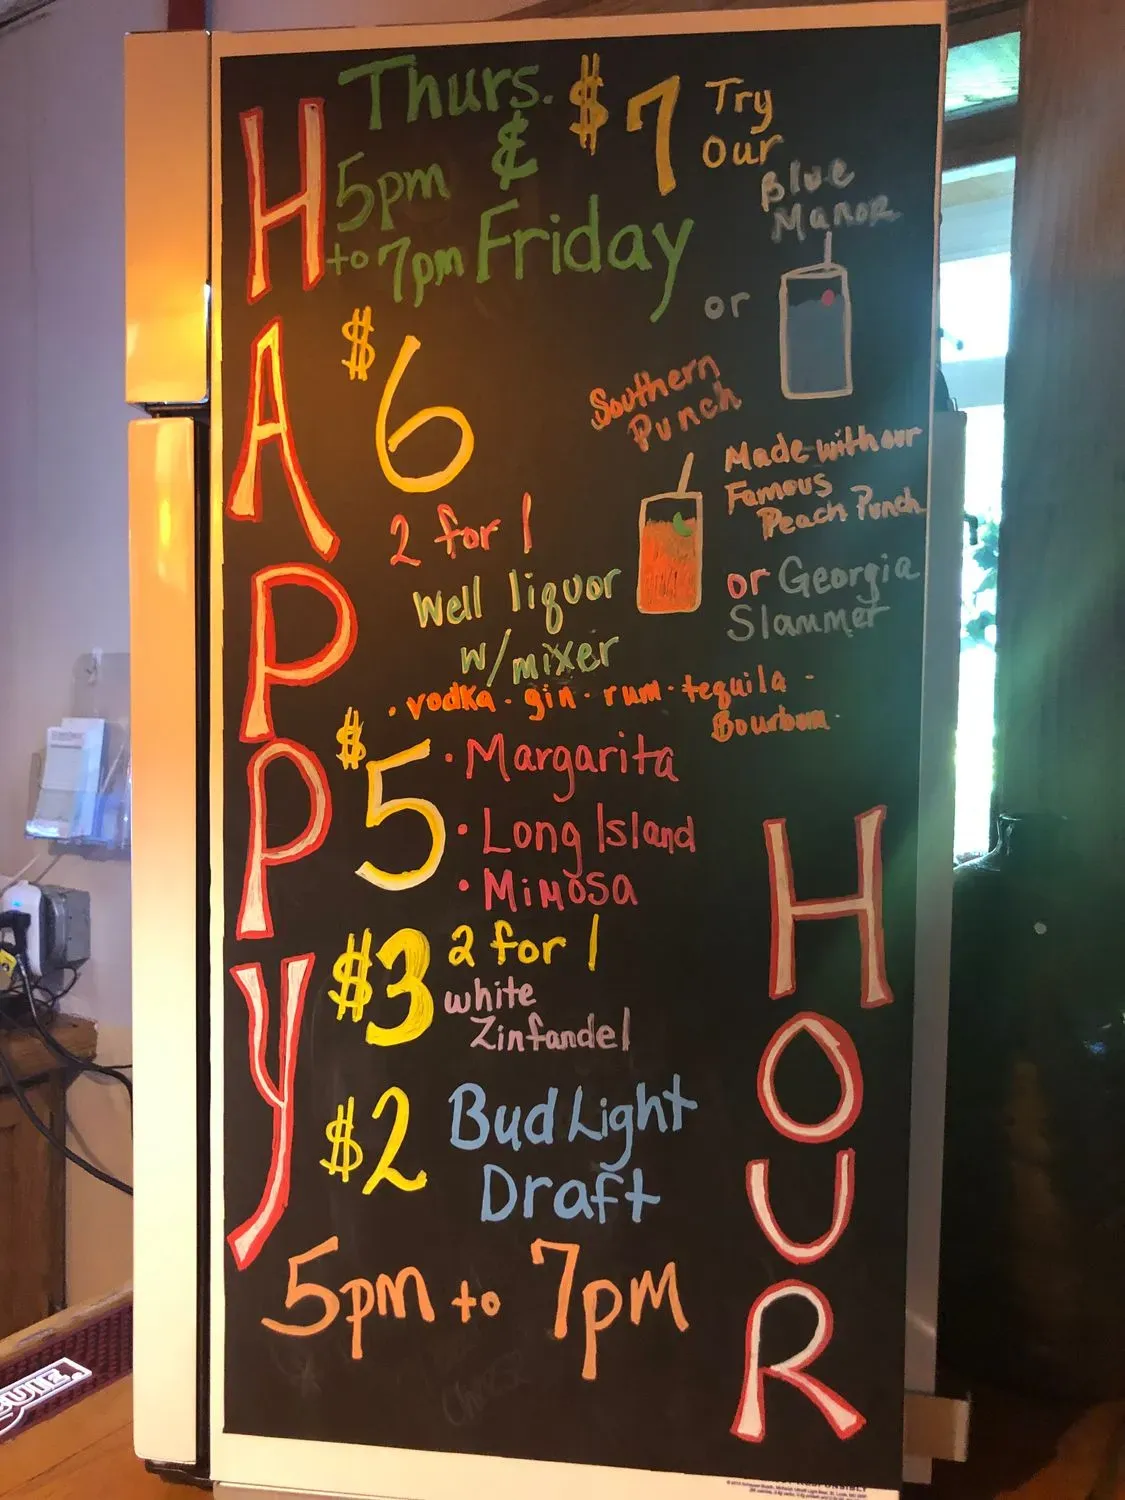 HAPPY
HOUR
Thurs.
&
Friday
5pm
to 7pm
$7
Try
Our
Blue
Manor
or
Southern
Punch
Made with our
Famous
Peach Punch
or Georgia
Slammer
$6
2 for 1
Well liquor
w/mixer
· vodka · gin · rum · tequila ·
Bourbon ·
$5
· Margarita
· Long Island
· Mimosa
$3
2 for 1
white
Zinfandel
$2
Bud Light
Draft
5pm to 7pm